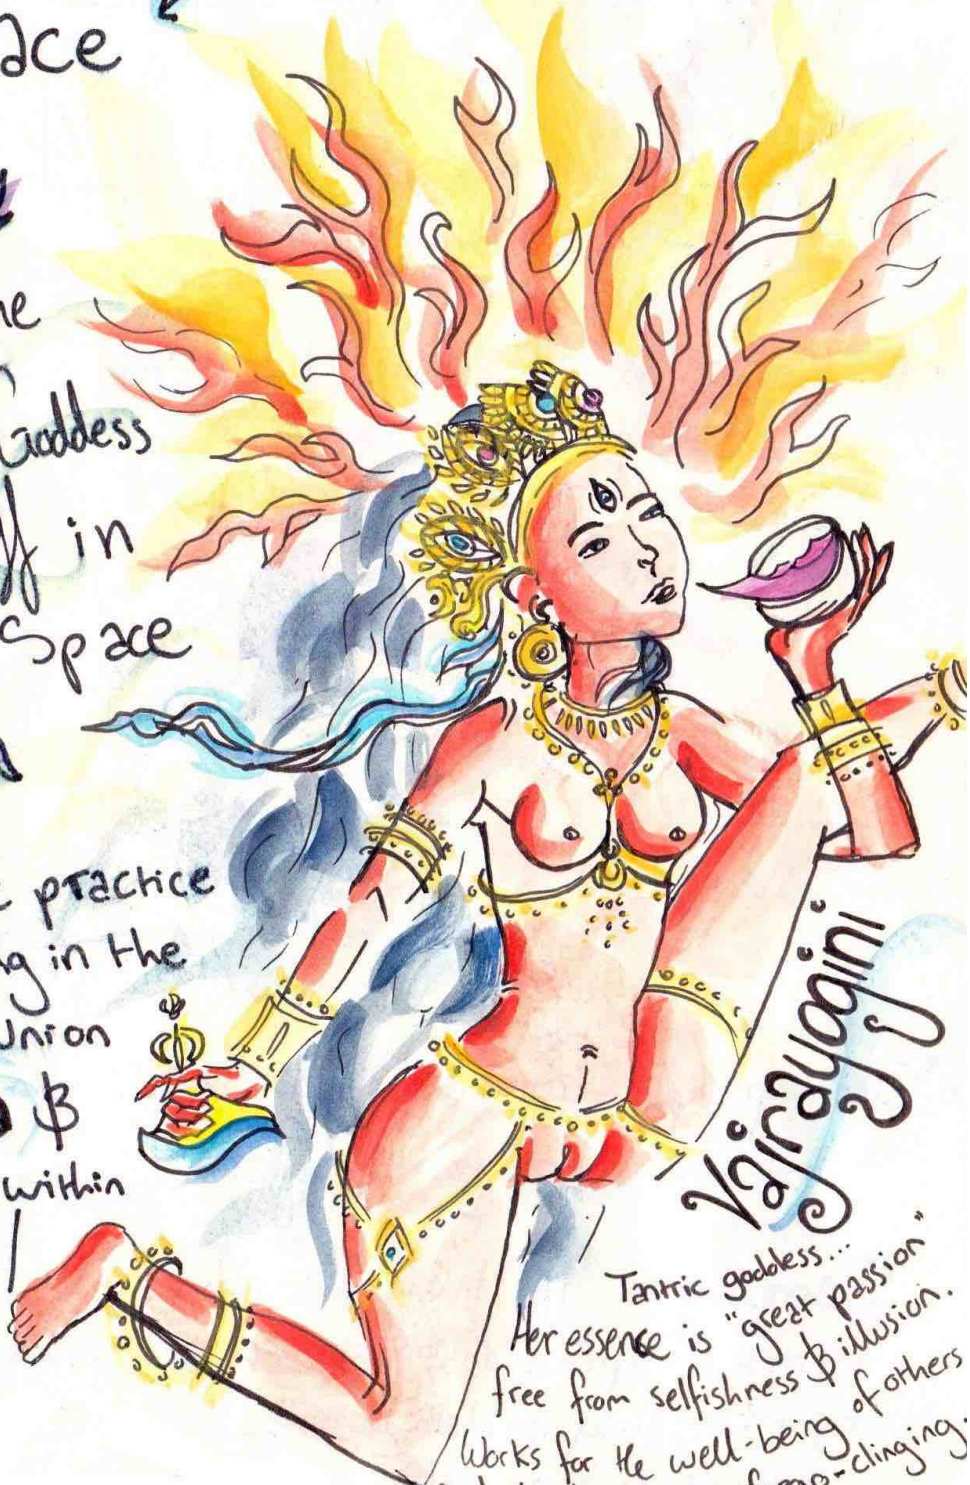 ace
Goddess
in
Space
practice
in the
Union
&
within
Vajrayogini
Tantric goddess...
Her essence is "great passion"
free from selfishness & illusion.
Works for the well-being of others
ego-clinging.